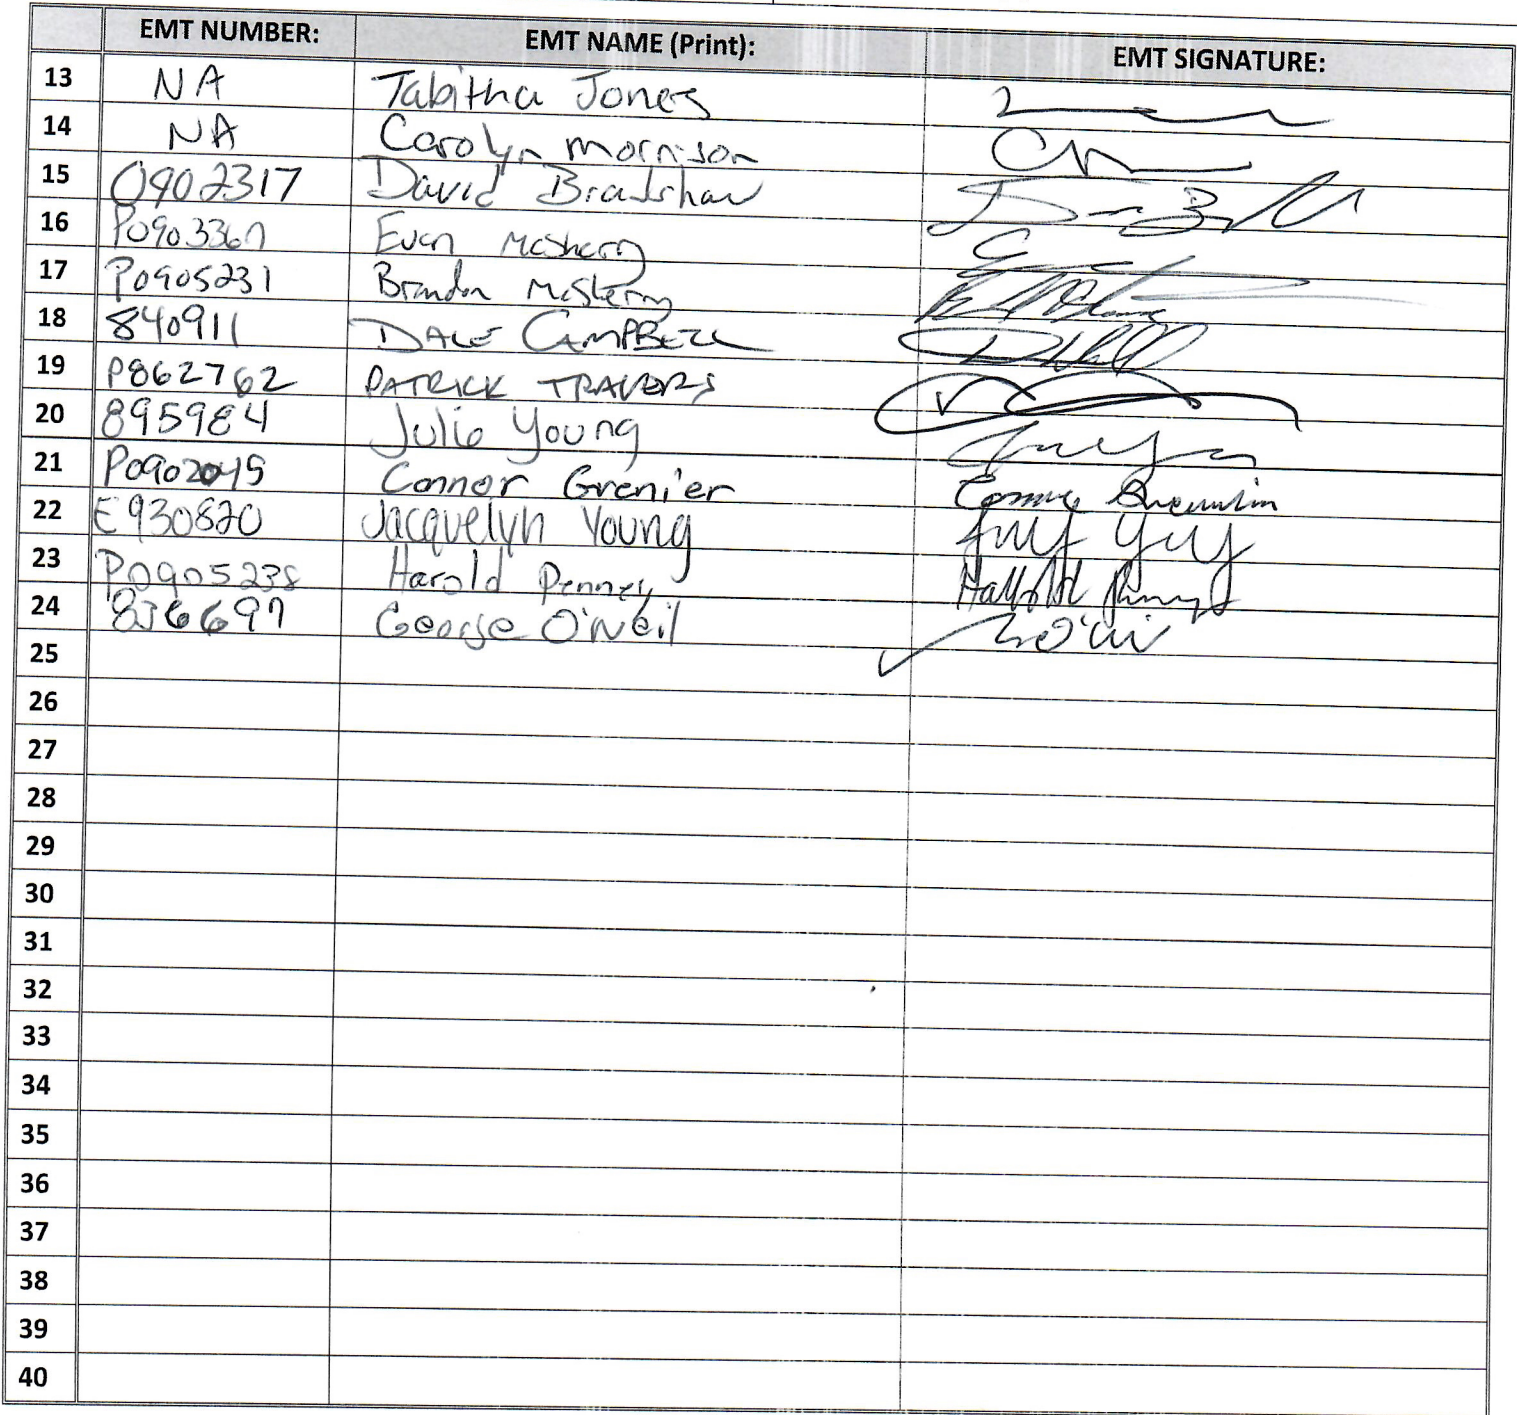 EMT NUMBER: EMT NAME (Print): EMT SIGNATURE:
13 NA Tabitha Jones
14 NA Carolyn Morrison
15 0902317 David Bradshaw
16 P0903367 Evan McSherry
17 P0905231 Brandon McSherry
18 840911 DALE CAMPBELL
19 P862762 PATRICK TRAVERS
20 895984 Julie Young
21 P0902045 Connor Grenier
22 E930820 Jacquelyn Young
23 P0905238 Harold Penney
24 836697 George O'Neil
25
26
27
28
29
30
31
32
33
34
35
36
37
38
39
40